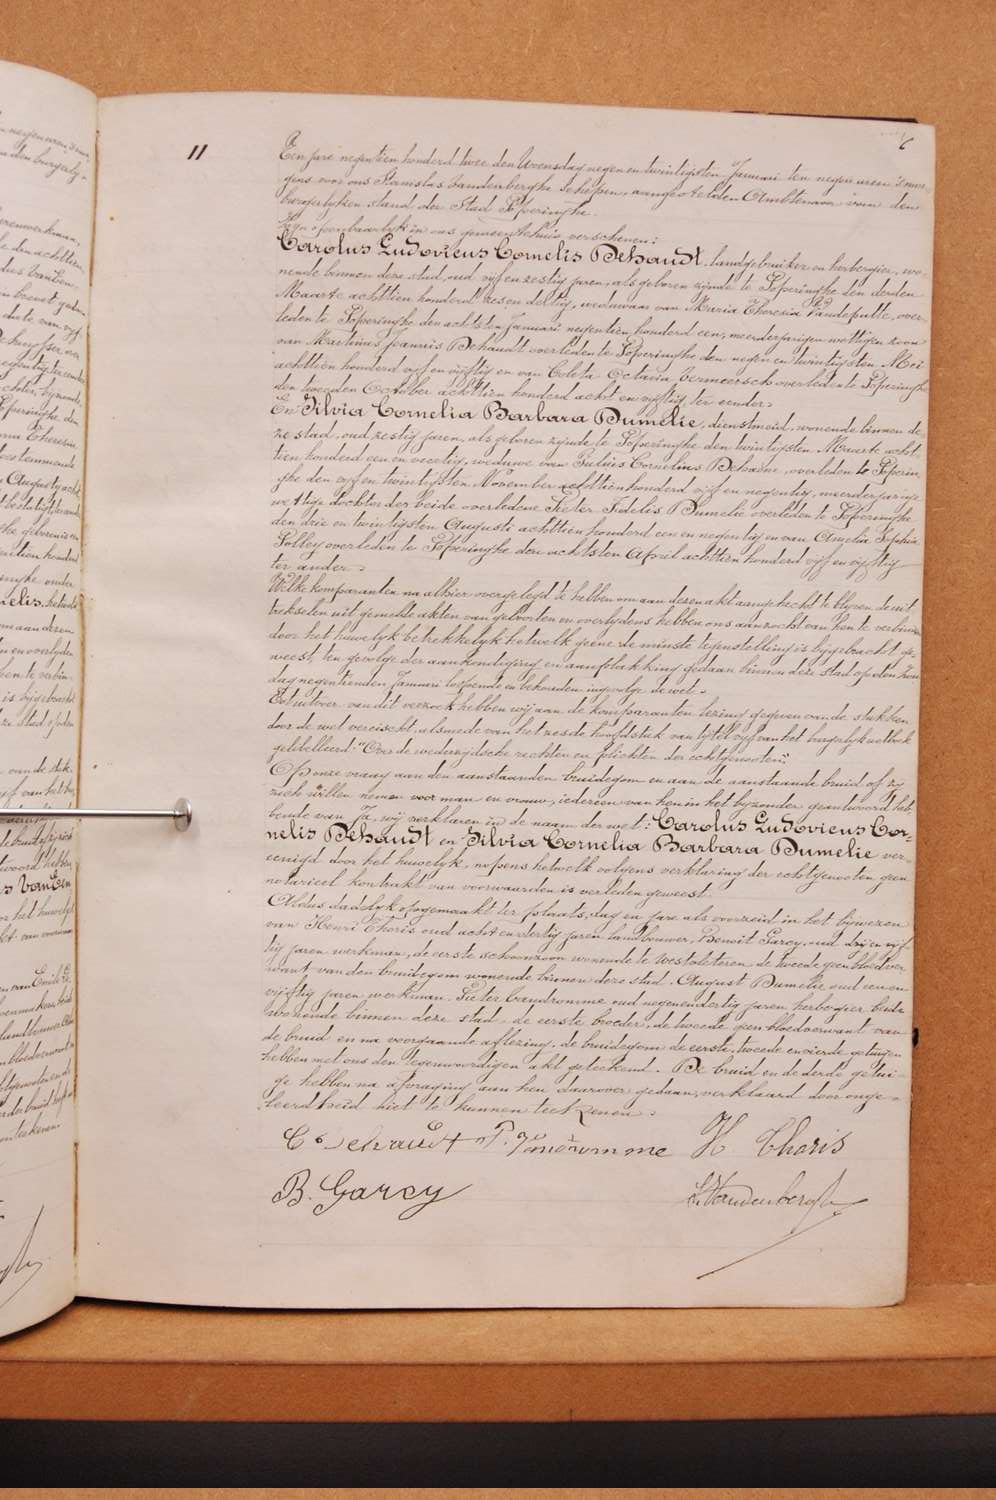 11
6
Een jare negentien honderd twee den Woensdag negen en twintigsten Januari ten negen uren 's mor-
gens voor ons Stanislas Vandenberghe Schepen, aangestelden Ambtenaar van den
burgerlyken stand der Stad Poperinghe.
Zyn openbaarlyk in ons gemeentehuis verschenen:
Carolus Ludovicus Cornelis Dehaudt, landgebruiker en herbergier, wo-
nende binnen deze stad, oud vyf en zestig jaren, als geboren zynde te Poperinghe den derden
Maarte achttien honderd zes en dertig, weduwaar van Maria Theresia Vandeputte, over-
leden te Poperinghe den achtsten Januari negentien honderd een; meerderjarigen wettigen zoon
van Martinus Joannis Dehaudt overleden te Poperinghe den negen en twintigsten Mei
achttien honderd vyf en vyftig en van Coleta Octavia Vermeersch overleden te Poperinghe
den tweeden October achttien honderd acht en vyftig, ter eender.
En Silvia Cornelia Barbara Dumelie, dienstmeid, wonende binnen de-
ze stad, oud zestig jaren, als geboren zynde te Poperinghe den twintigsten Maarte acht-
tien honderd een en veertig, weduwe van Julius Cornelius Behaeve, overleden te Poperin-
ghe den vyf en twintigsten November achttien honderd vyf en negentig, meerderjarige
wettige dochter der beide overledene Pieter Fidelis Dumelie overleden te Poperinghe
den drie en twintigsten Augusti achttien honderd een en negentig en van Amelia Sophia
Lolley overleden te Poperinghe den achtsten April achttien honderd vyf en vyftig
ter ander.
Welke komparanten na alhier overgelegd te hebben om aan dezen akt aangehecht te blyven de uit-
trekselen uit gemelde akten van geboorten en overlydens hebben ons aanzocht van hen te verbinden
door het huwelyk betrekkelyk hetwelk geene de minste tegenstelling is bygebracht ge-
weest, ten gevolge der aankondiging en aanplakking gedaan binnen deze stad op den Zon-
dag negentienden Januari loopende en behouden ingevolge de wet.
Uit uitvoer van dit verzoek hebben wy aan de komparanten lezing gegeven van de stukken
door de wet vereischt, alsmede van het zesde hoofdstuk van tytel vyf van het burgerlyk wetboek
gelibelleerd: "Over de wederzydsche rechten en plichten der echtgenooten".
Op onze vraag aan den aanstaanden bruidegom en aan de aanstaande bruid of zy
zich willen nemen voor man en vrouw, iedereen van hen in het byzonder geantwoord heb-
bende van Ja, wy verklaren in de naam der wet: Carolus Ludovicus Cor-
nelis Dehaudt en Silvia Cornelia Barbara Dumelie ver-
eenigd door het huwelyk, nopens hetwelk volgens verklaring der echtgenooten geen
notarieel kontrakt van voorwaarden is verleden geweest.
Aldus dadelyk opgemaakt ter plaats, dag en jare als voorzeid in het bijwezen
van Henri Thoris oud acht en dertig jaren landbouwer, Benoit Garcy, oud drij en vyf-
tig jaren werkman, de eerste schoonzoon wonende te Westvleteren de tweede geen bloedver-
want van den bruidegom wonende binnen deze stad. August Dumelie oud een en
vyftig jaren werkman. Pieter Vandromme oud negenendertig jaren herbergier beide
wonende binnen deze stad, de eerste broeder, de tweede geen bloedverwant van
de bruid en na voorgaande aflezing, de bruidegom de eerste, tweede en vierde getuigen
hebben met ons den tegenwoordigen akt geteekend. De bruid en de derde getui-
ge hebben na afvraging aan hen daarover gedaan, verklaard door onge-
leerdheid niet te kunnen teekenen.
Cs Dehaudt P. Vandromme H Thoris
B. Garcy S. Vandenberghe